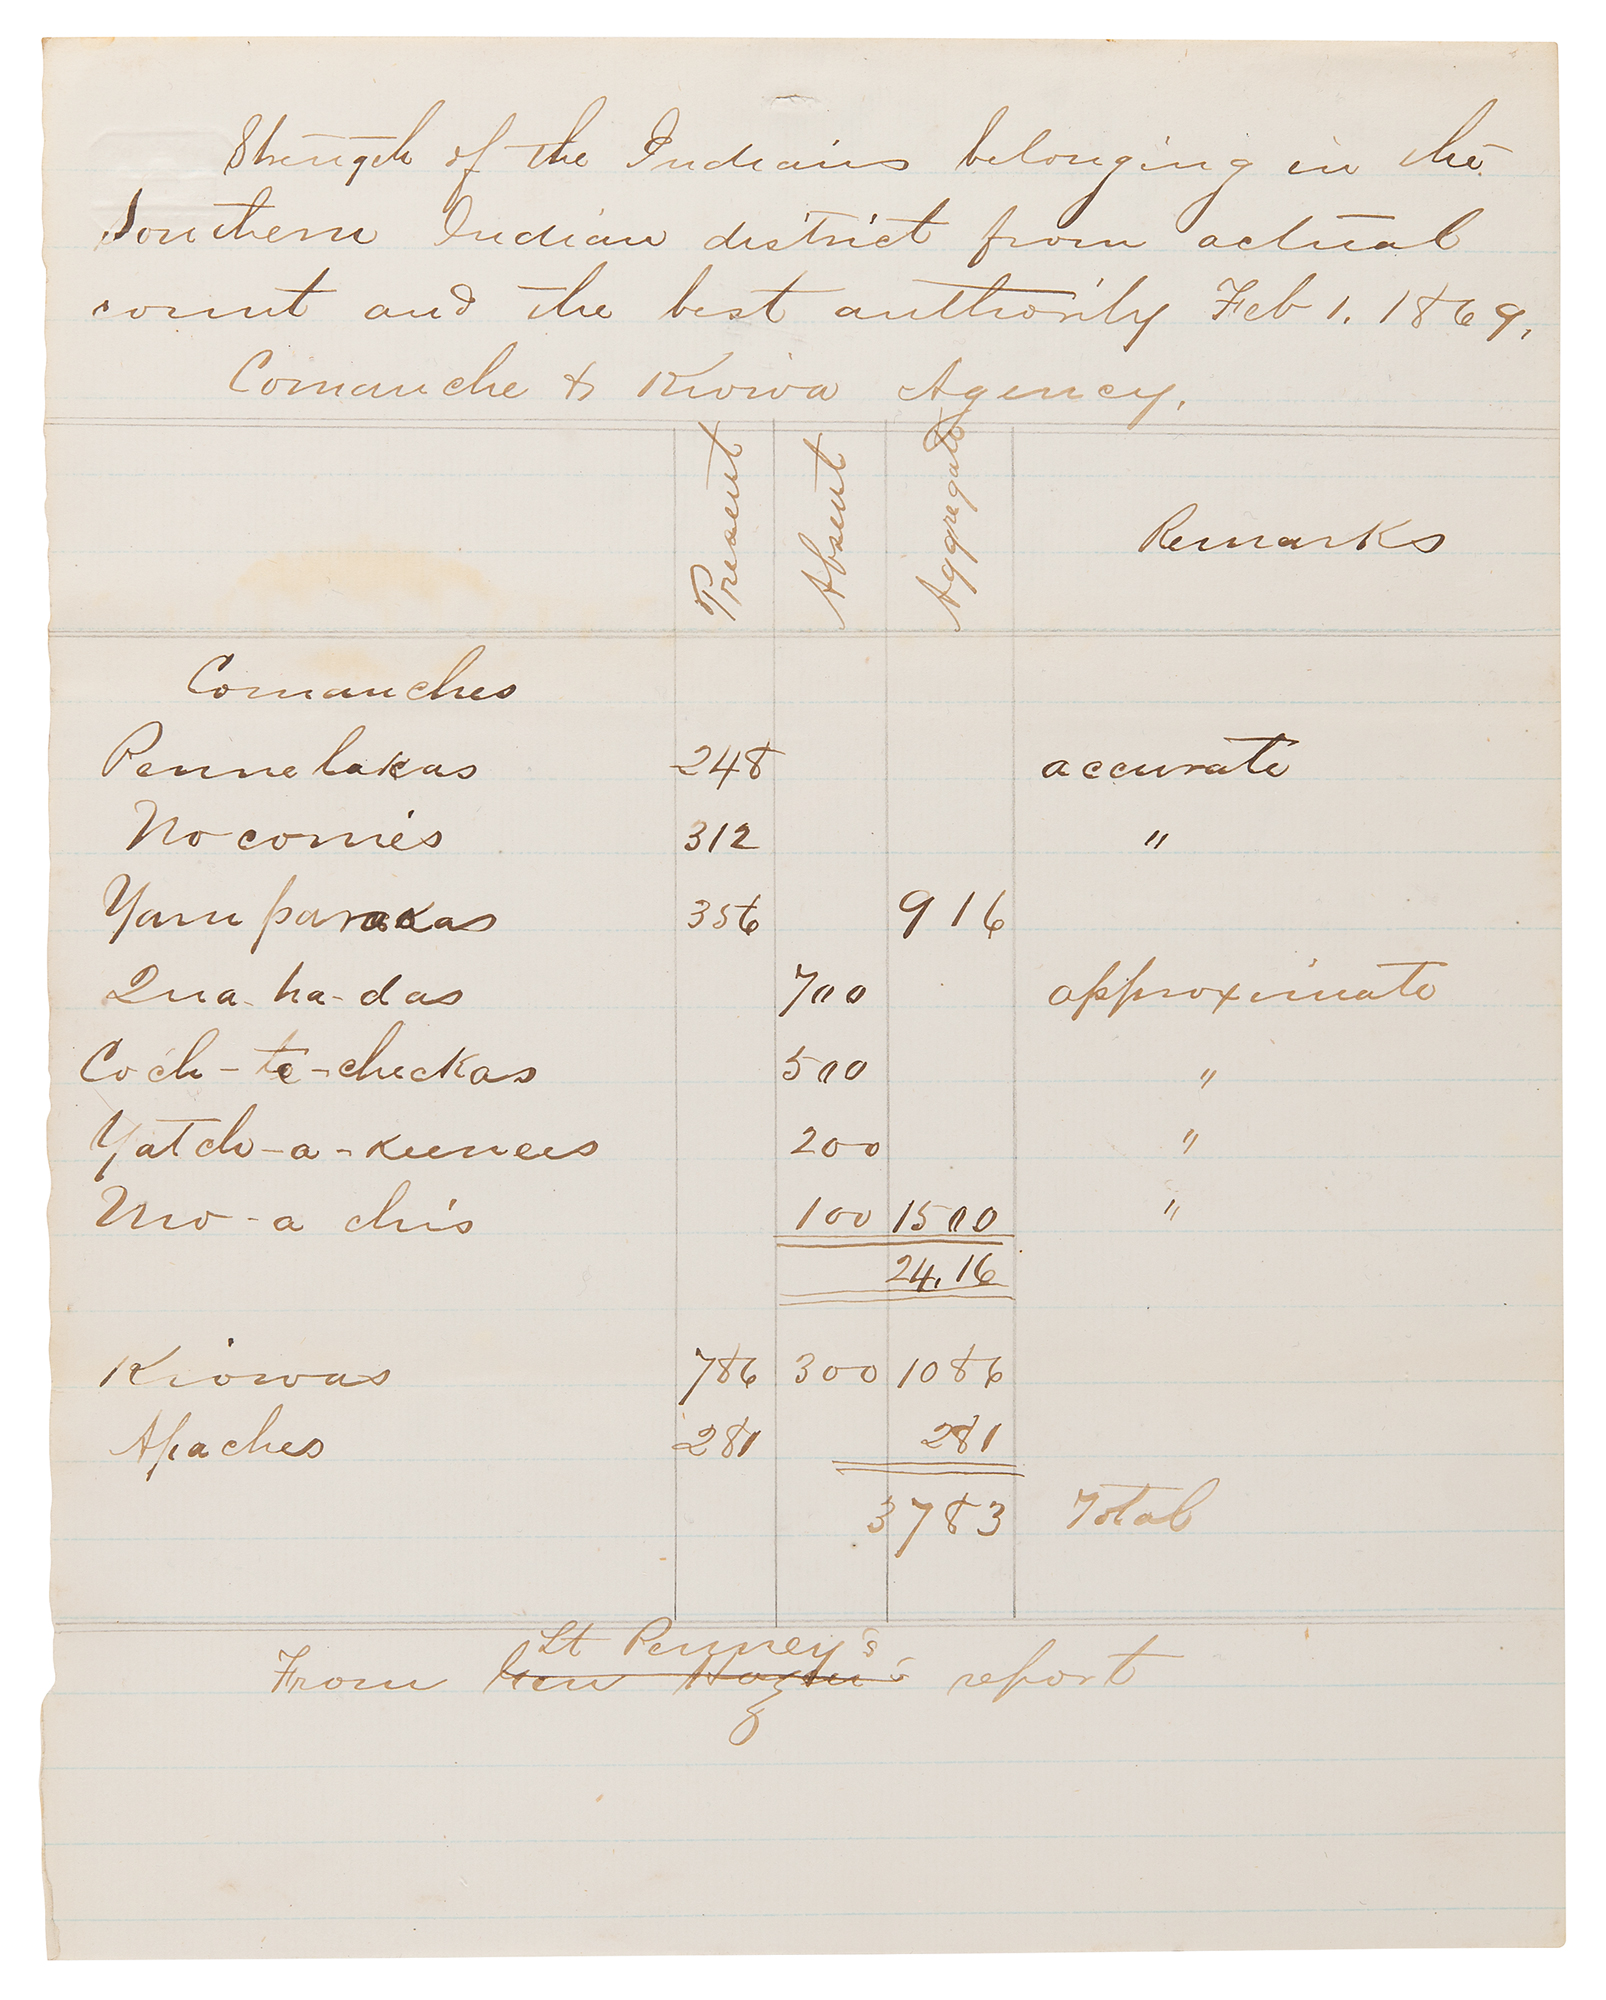 Strength of the Indians belonging in the
Southern Indian district from actual
count and the best authority Feb 1. 1869.
Comanche & Kiowa Agency.
Present Absent Aggregate Remarks
Comanches
Pennelakas 248 accurate
No comies 312 "
Yam parakas 356 916
Qua-ha-das 700 approximate
Coch-te-chckas 500 "
Yatch-a-keenees 200 "
Mo-a chis 100 1500 "
24.16
Kiowas 786 300 1086
Apaches 281 281
3783 Total
Lt Penney's
From Gen Hazen's report